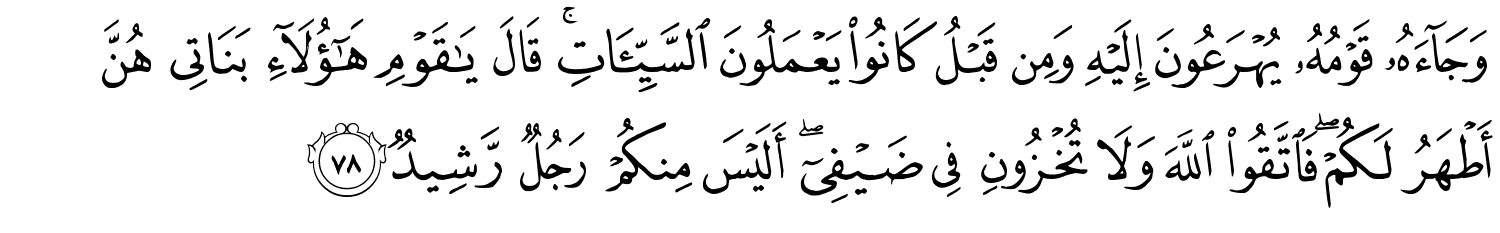 وَجَآءَهُۥ قَوْمُهُۥ يُهْرَعُونَ إِلَيْهِ وَمِن قَبْلُ كَانُوا۟ يَعْمَلُونَ ٱلسَّيِّـَٔاتِ ۚ قَالَ يَـٰقَوْمِ هَـٰٓؤُلَآءِ بَنَاتِى هُنَّ
أَطْهَرُ لَكُمْ ۖ فَٱتَّقُوا۟ ٱللَّهَ وَلَا تُخْزُونِ فِى ضَيْفِىٓ ۖ أَلَيْسَ مِنكُمْ رَجُلٌ رَّشِيدٌ ٧٨